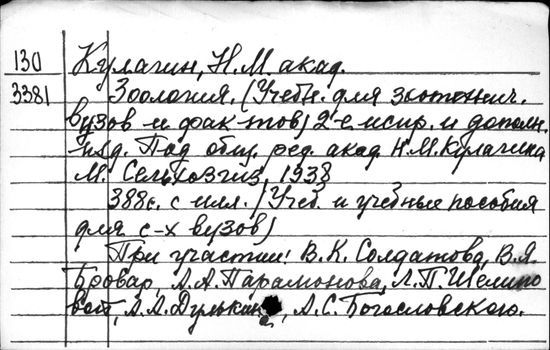 130 Кулагин, Н.М акад.
3381 Зоология. (Учебн. для зоотехнич.
вузов и фак-тов) 2-е испр. и дополн.
изд. Под общ. ред. акад. Н.М.Кулагина
М. Сельхозгиз, 1938
388с. с илл. (Учеб. и учебные пособия
для с-х вузов)
При участии: В.К. Солдатова, В.Я.
Бровар, А.А.Парамонова, Л.П.Шелипо
вой, А.А.Дулькин , А.С.Богословского.